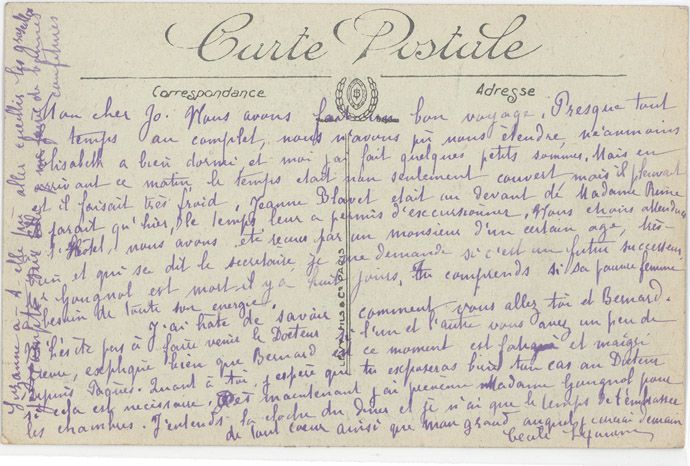 Carte Postale
Correspondance
Adresse
Mon cher Jo. Nous avons fait bon voyage. Presque tout
le temps au complet, nous n'avons pu nous étendre, néanmoins
Elisabeth a bien dormi et moi j'ai fait quelques petits sommes. Mais en
arrivant ce matin, le temps était non seulement couvert mais il pleuvait
et il faisait très froid. Jeanne Blavet était au devant de Madame Reine
Il paraît qu'hier, le temps leur a permis d'excursionner. Nous étions attendues
à l'Hôtel, nous avons été reçues par un monsieur d'un certain âge, très
bien et qui se dit le secrétaire je me demande si c'est un futur successeur
Gougnol est mort il y a huit jours, tu comprends si sa pauvre femme
a besoin de toute son énergie.
J'ai hâte de savoir comment vous allez toi et Bernard.
N'hésite pas à faire venir le Docteur si l'un et l'autre vous avez un peu de
fièvre, explique bien que Bernard en ce moment est fatigué et maigri
depuis Pâques. Quant à toi, j'espère que tu exposeras bien ton cas au Docteur
si cela est nécessaire. Dès maintenant j'ai prévenu Madame Gougnol pour
les chambres. J'entends la cloche du dîner et je n'ai que le temps de t'embrasser
de tout cœur ainsi que mon grand auquel j'écrirai demain
Cécile
Suzanne a-t-elle pu aller cueillir les groseilles